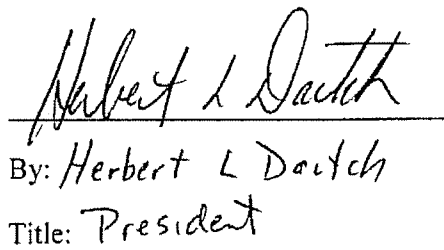 Herbert L Daitch
By: Herbert L Daitch
Title: President